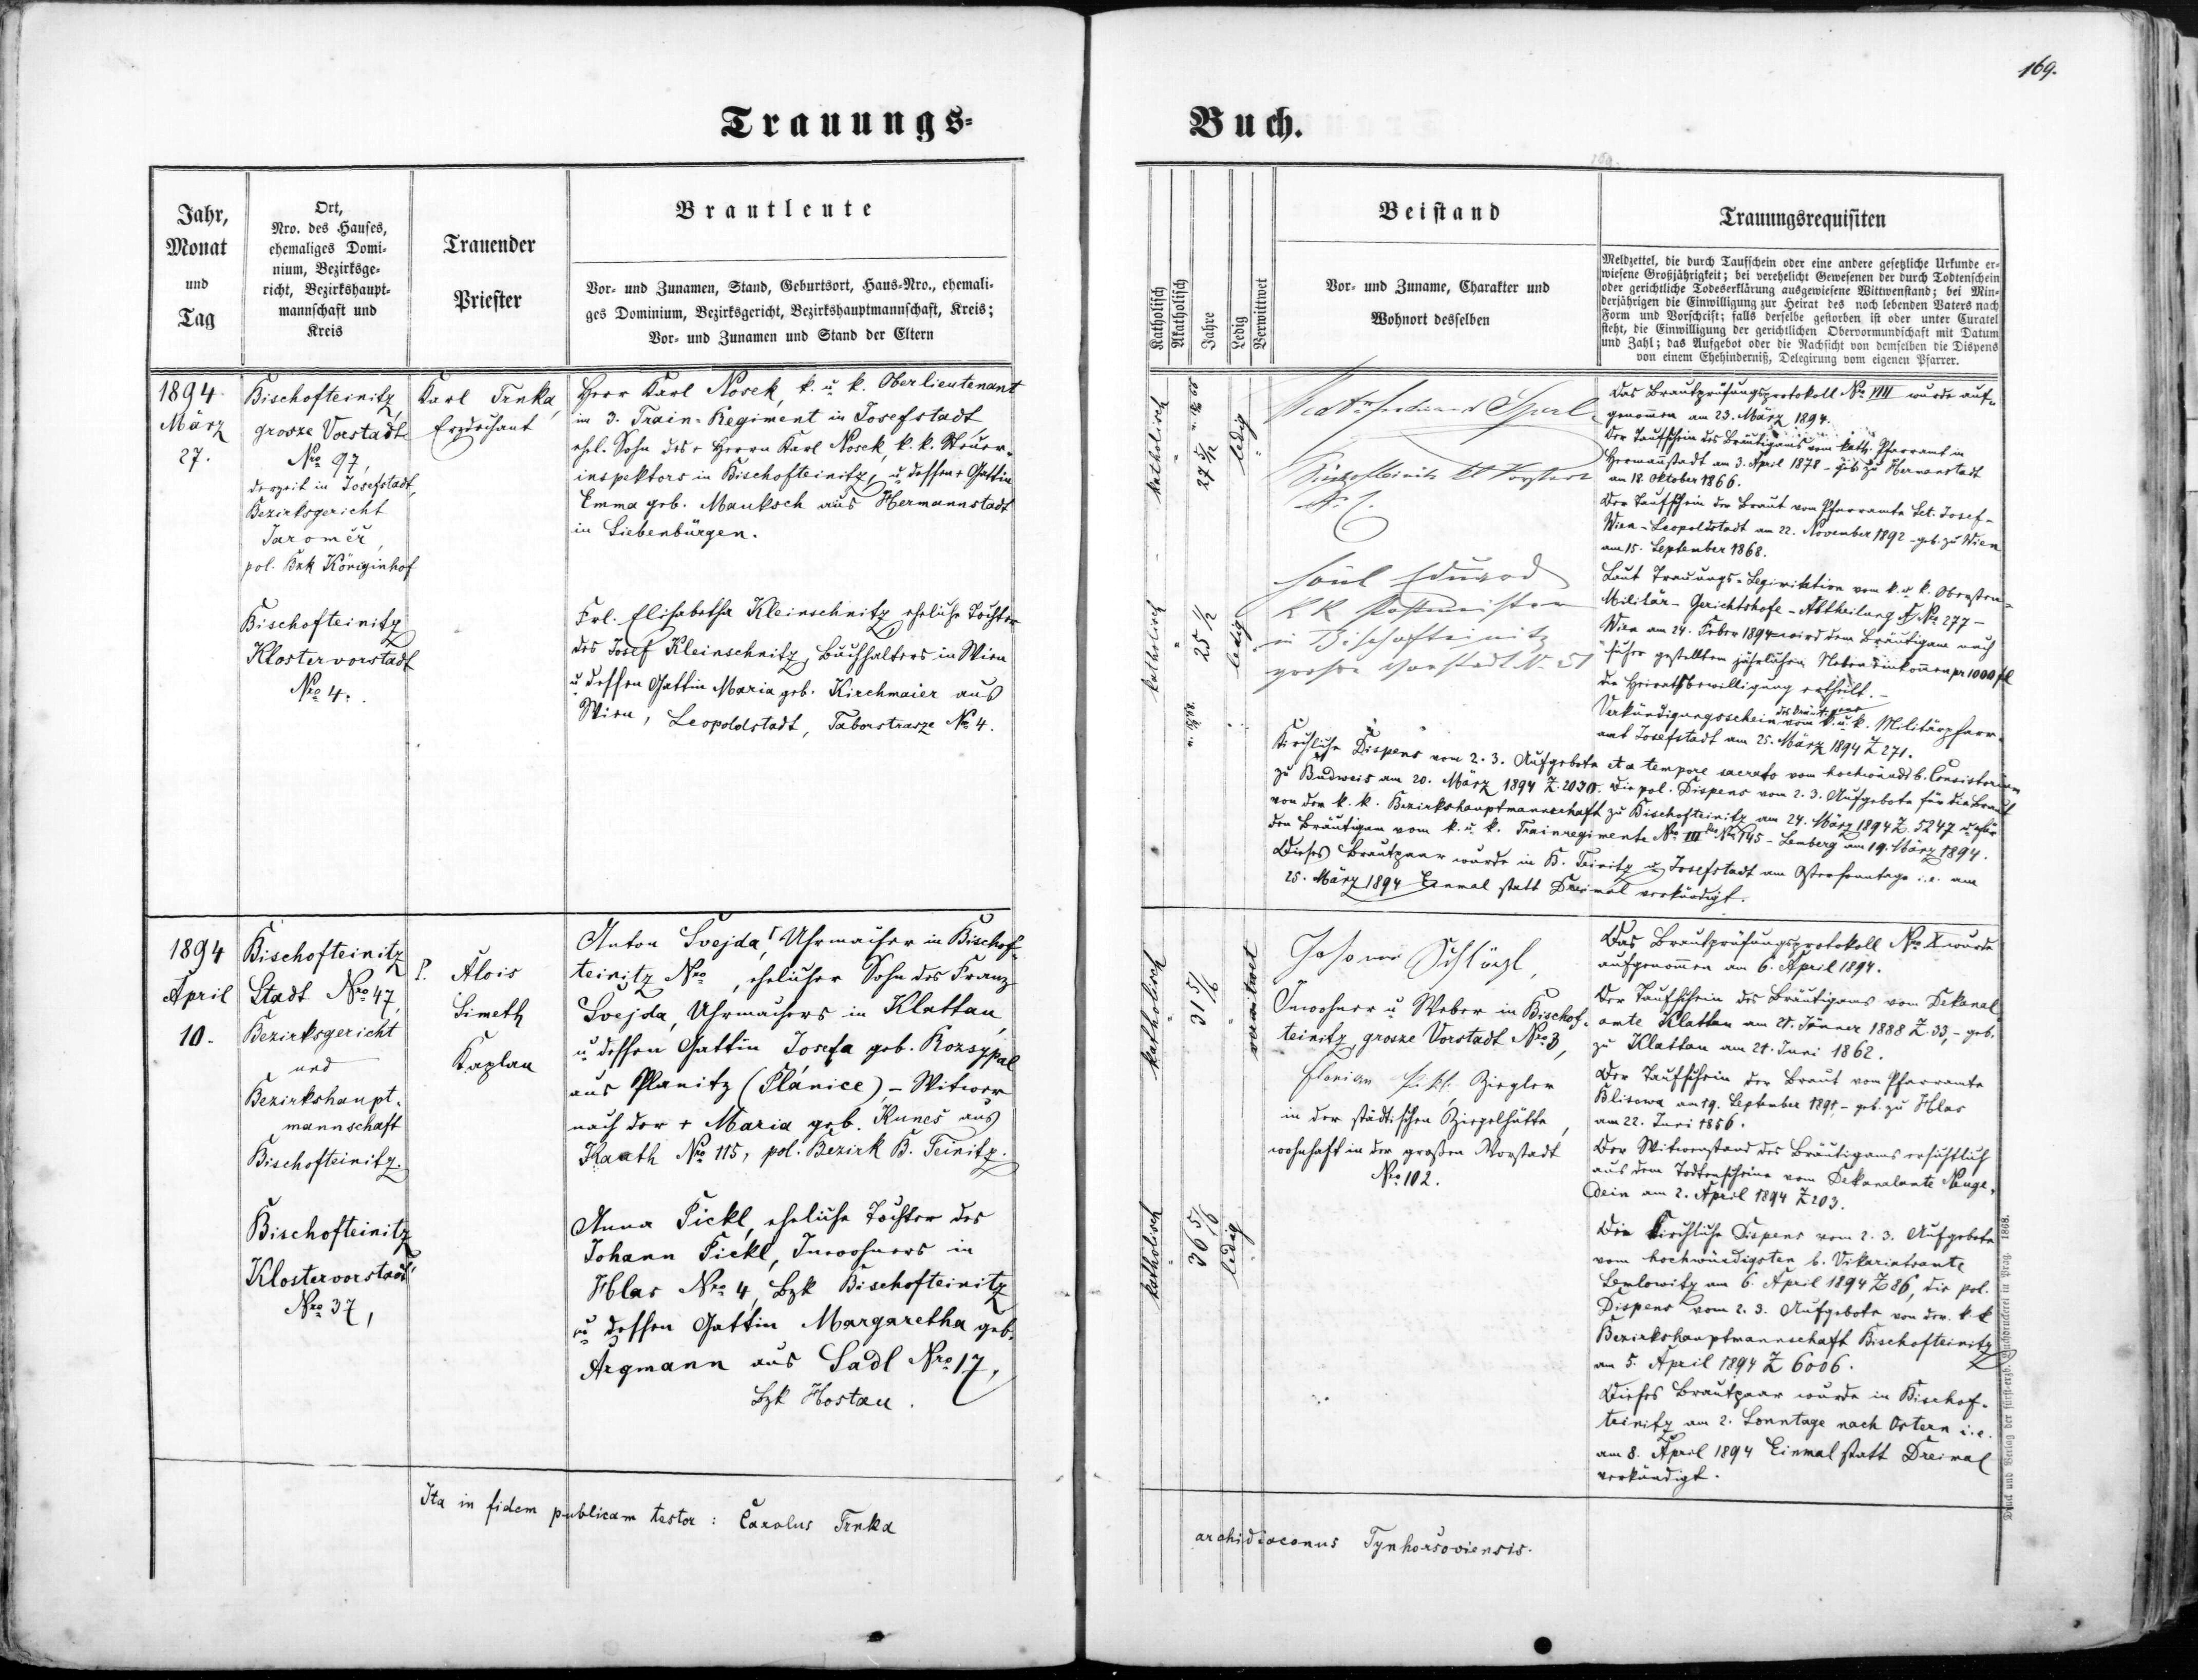 169.
Trauungs-
Buch.
Jahr,
Monat
und
Tag
Ort,
Nro. des Hauses,
ehemaliges Domi-
nium, Bezirksge-
richt, Bezirkshaupt-
mannschaft und
Kreis
Trauender
Priester
Brautleute
Vor- und Zunamen, Stand, Geburtsort, Haus-Nro., ehemali-
ges Dominium, Bezirksgericht, Bezirkshauptmannschaft, Kreis;
Vor- und Zunamen und Stand der Eltern
Katholisch
Akatholisch
Jahre
Ledig
Verwittwet
Beistand
Vor- und Zuname, Charakter und
Wohnort desselben
Trauungsrequisiten
Meldzettel, die durch Taufschein oder eine andere gesetzliche Urkunde er-
wiesene Großjährigkeit; bei verehelicht Gewesenen der durch Todtenschein
oder gerichtliche Todeserklärung ausgewiesene Wittwenstand; bei Min-
derjährigen die Einwilligung zur Heirat des noch lebenden Vaters nach
Form und Vorschrift; falls derselbe gestorben ist oder unter Curatel
steht, die Einwilligung der gerichtlichen Obervormundschaft mit Datum
und Zahl; das Aufgebot oder die Nachsicht von demselben die Dispens
von einem Ehehinderniß, Delegirung vom eigenen Pfarrer.
1894
März
27.
Bischofteinitz,
grosze Vorstadt
Nro 97,
derzeit in Josefstadt,
Bezirksgericht
Jaroměř,
pol. Bzk Königinhof
Bischofteinitz
Klostervorstadt
Nro 4.
Karl Trnka,
Erzdechant
Herr Karl Nosek, k. u. k. Oberlieutenant
im 3. Train-Regiment in Josefstadt,
ehl. Sohn des + Herrn Karl Nosek, k. k. Steuer-
inspektors in Bischofteinitz, u dessen + Gattin
Emma geb. Mauksch aus Hermannstadt
in Siebenbürgen.
Frl. Elisabetha Kleinschnitz eheliche Tochter
des Josef Kleinschnitz, Buchhalters in Wien
u dessen Gattin Maria geb. Kirchmaier aus
Wien, Leopoldstadt, Taborstrasze No 4.
katholisch
27 5/12
ledig
katholisch
25 1/2
ledig
Ferdinand Sperl
Bischofteinitz
Eduard
K K Postmeister
in Bischofteinitz
grosse Vorstadt N. 51
Das Brautprüfungsprotokoll No VIII wurde auf-
genommen am 23. März 1894.
Der Taufschein des Bräutigams vom kath. Pfarramt in
Hermannstadt am 3. April 1878 - geb. zu Hermannstadt
am 18. Oktober 1866.
Der Taufschein der Braut vom Pfarramte Set. Josef-
Wien-Leopoldstadt am 22. November 1892 - geb. zu Wien
am 15. September 1868.
Laut Trauungs-Legitimation vom k. u. k. Obersten
Militär-Gerichtshofe-Abtheilung No 277 -
Wien am 24. Feber 1894 wird dem Bräutigam nach
gestelltem jährlichen Nebeneinkommen pr 1000 fl
die Heirathsbewilligung ertheilt. -
Verkündigungsschein des Bräutigams vom k. u. k. Militärpfarr-
amt Josefstadt am 25. März 1894 Z 271.
Kirchliche Dispens vom 2. 3. Aufgebote et a tempore sacrato vom hochwürdst. b. Consistorium
zu Budweis am 20. März 1894 Z. 2030. Die pol. Dispens vom 2. 3. Aufgebote für die Braut
von der k. k. Bezirkshauptmannschaft zu Bischofteinitz am 24. März 1894 Z. 5247 u. für
den Bräutigam vom k. u. k. Trainregimente No III No 145 - Lemberg am 19. März 1894.
Dieses Brautpaar wurde in B. Teinitz u Josefstadt am Ostersonntage i.e. am
25. März 1894 Einmal statt Dreimal verkündigt.
1894
April
10.
Bischofteinitz
Stadt Nro 47,
Bezirksgericht
und
Bezirkshaupt-
mannschaft
Bischofteinitz.
Bischofteinitz
Klostervorstadt
Nro 37,
P. Alois
Simeth
Kaplan
Anton Svejda, Uhrmacher in Bischof-
teinitz Nro , ehelicher Sohn des Franz
Svejda, Uhrmachers in Klattau,
u dessen Gattin Josefa geb. Rozsypal
aus Planitz (Plánice), - Witwer
nach der + Maria geb. Kuneš aus
Kauth Nro 115, pol. Bezirk B. Teinitz.
Anna Pickl, eheliche Tochter des
Johann Pickl, Inwohners in
Hlas Nro 4, Bzk Bischofteinitz
u dessen Gattin Margaretha geb.
Argmann aus Sadl Nro 17,
Bzk Hostau.
katholisch
31 5/6
verwitwet
katholisch
36 5/6
ledig
Johann Schlögl,
Inwohner u Weber in Bischof-
teinitz, grosze Vorstadt Nro 3,
Florian Ziegler
in der städtischen Ziegelhütte,
wohnhaft in der großen Vorstadt
Nro 102.
Das Brautprüfungsprotokoll Nro X wurde
aufgenommen am 6. April 1894.
Der Taufschein des Bräutigams vom Dekanal-
amte Klattau am 21. Jänner 1888 Z. 33, - geb.
zu Klattau am 21. Juni 1862.
Der Taufschein der Braut vom Pfarramte
Blisowa am 19. September 1891, - geb. zu Hlas
am 22. Juni 1856.
Der Witwenstand des Bräutigams ersichtlich
aus dem Todtenscheine vom Dekanalamte Neuge-
dein am 2. April 1894 Z 203.
Die kirchliche Dispens vom 2. 3. Aufgebote
vom hochwürdigsten b. Vikariatsamte
Semlowitz am 6. April 1894 Z 86, die pol.
Dispens vom 2. 3. Aufgebote von der k. k
Bezirkshauptmannschaft Bischofteinitz
am 5. April 1894 Z 6006.
Dieses Brautpaar wurde in Bischof-
teinitz am 2. Sonntage nach Ostern i.e.
am 8. April 1894 Einmal statt Dreimal
verkündigt.
Ita in fidem publicam testor: Carolus Trnka
archidiaconus Tynhorsoviensis.
Druck und Verlag der fürst-erzb. Buchdruckerei in Prag. 1868.